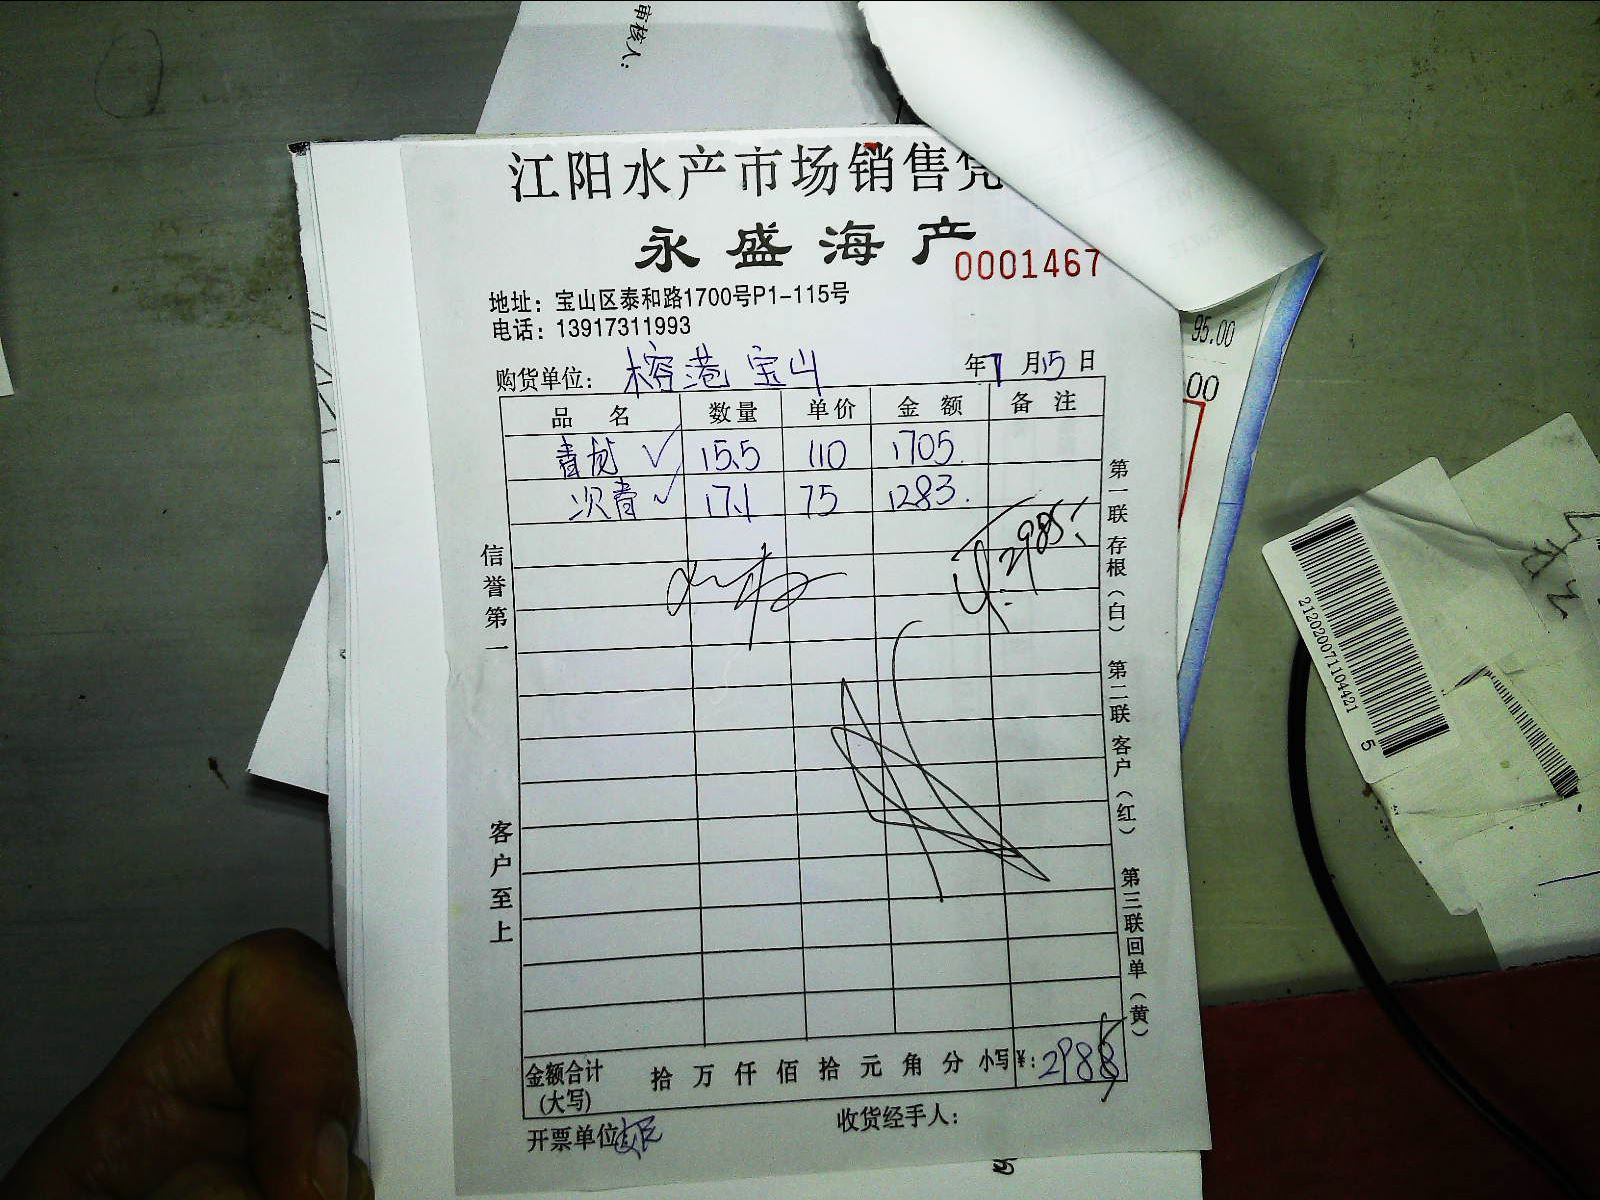 审核人:
江阳水产市场销售凭
永盛海产
0001467
地址：宝山区泰和路1700号P1-115号
电话：13917311993
购货单位： 榕港宝山 年7月15日
品名 数量 单价 金额 备注
青龙 ✓ 15.5 110 1705.
次青 ✓ 17.1 75 1283.
2985
信誉第一
客户至上
第一联存根(白) 第二联客户(红) 第三联回单(黄)
金额合计(大写) 拾 万 仟 佰 拾 元 角 分 小写 ¥: 2985
开票单位
收货经手人：
95.00
00
2120200711044215